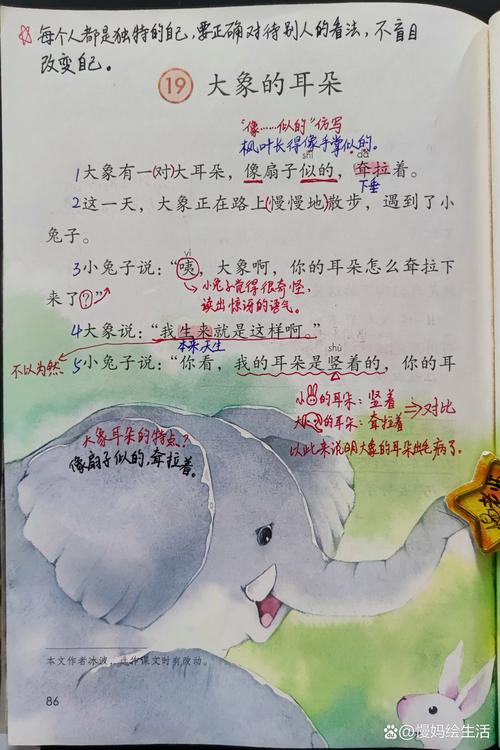 每个人都是独特的自己，要正确对待别人的看法，不盲目
改变自己。
19 大象的耳朵
“像……似的”仿写
枫叶长得像手掌似的。
shì dā
1大象有一(对)大耳朵，像扇子似的，耷拉着。
下垂
2这一天，大象正在路上(慢慢地)散步，遇到了小
兔子。
yí
3小兔子说：“咦，大象啊，你的耳朵怎么耷拉下
来了？”
小兔子觉得很奇怪，
读出惊讶的语气。
4大象说：“我生来就是这样啊。”
本来天生
shù
不以为然
5小兔子说：“你看，我的耳朵是竖着的，你的耳
小的耳朵：竖着
大的耳朵：耷拉着
⇒对比
以此来说明大象的耳朵出毛病了。
大象耳朵的特点？
像扇子似的，耷拉着。
本文作者冰波，选作课文时有改动。
86
慢妈绘生活